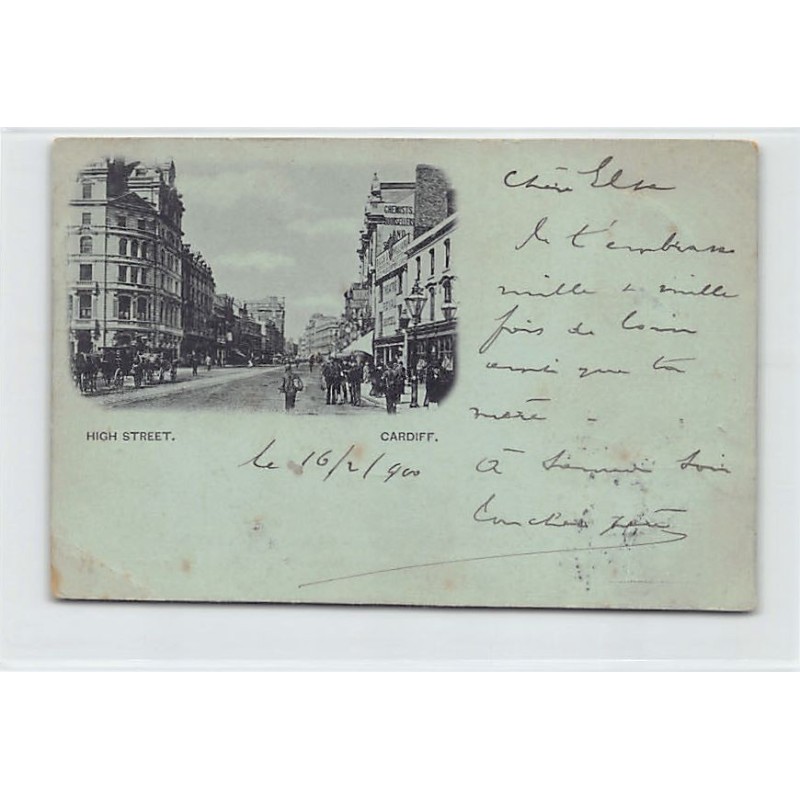 CHEMISTS
AND
HIGH STREET.
CARDIFF.
le 16/2/900
chère Elsa
Je t'embrasse
mille & mille
fois de loin
ainsi que ta
mère -
à Samedi soir
ton cher père